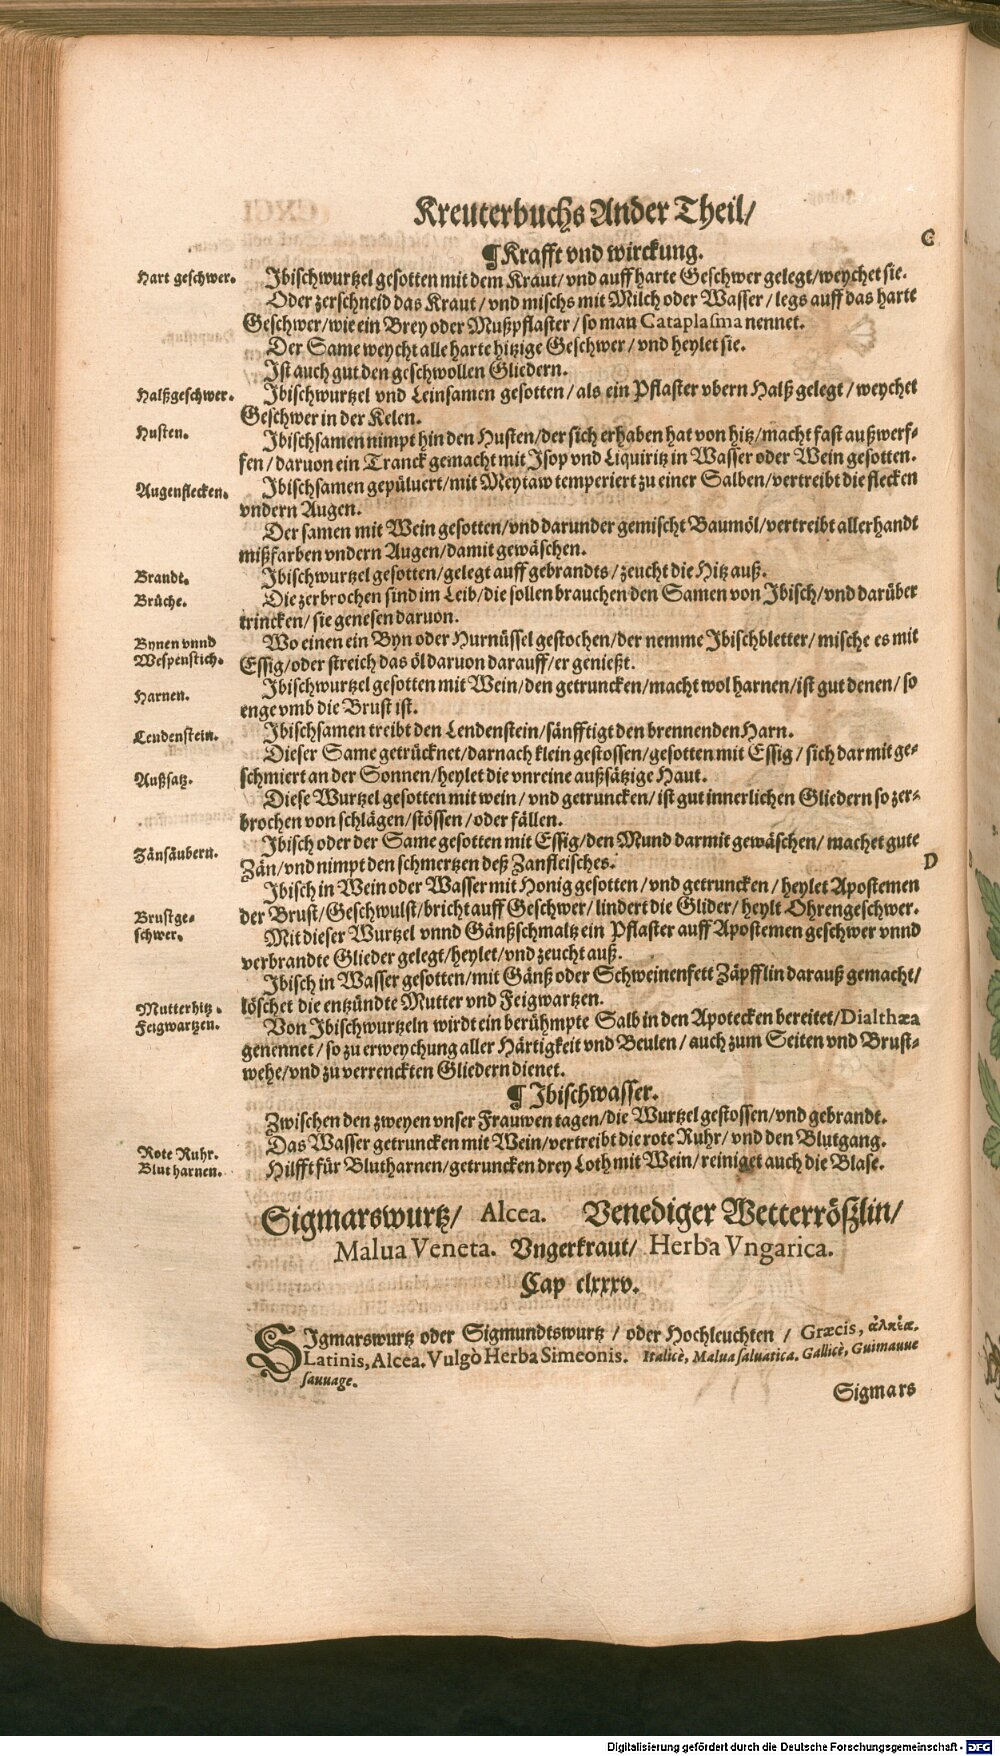 Kreuterbuchs Ander Theil/
C
¶ Krafft vnd wirckung.
Hart geschwer.
Ibischwurtzel gesotten mit dem Kraut/ vnd auff harte Geschwer gelegt/ weychet sie.
Oder zerschneid das Kraut/ vnd mischs mit Milch oder Wasser/ legs auff das harte
Geschwer/ wie ein Brey oder Mußpflaster/ so man Cataplasma nennet.
Der Same weycht alle harte hitzige Geschwer/ vnd heylet sie.
Ist auch gut den geschwollen Gliedern.
Halßgeschwer.
Ibischwurtzel vnd Leinsamen gesotten/ als ein Pflaster vbern Halß gelegt/ weychet
Geschwer in der Kelen.
Husten.
Ibischsamen nimpt hin den Husten/ der sich erhaben hat von hitz/ macht fast außwerf-
fen/ daruon ein Tranck gemacht mit Isop vnd Liquiritz in Wasser oder Wein gesotten.
Augenflecken.
Ibischsamen gepüluert/ mit Meytaw temperiert zu einer Salben/ vertreibt die flecken
vndern Augen.
Der samen mit Wein gesotten/ vnd darunder gemischt Baumöl/ vertreibt allerhandt
mißfarben vndern Augen/ damit gewäschen.
Brandt.
Ibischwurtzel gesotten/ gelegt auff gebrandts/ zeucht die Hitz auß.
Brüche.
Die zerbrochen sind im Leib/ die sollen brauchen den Samen von Ibisch/ vnd darüber
trincken/ sie genesen daruon.
Bynen vnnd
Wespenstich.
Wo einen ein Byn oder Hurnüssel gestochen/ der nemme Ibischbletter/ mische es mit
Essig/ oder streich das öl daruon darauff/ er genießt.
Harnen.
Ibischwurtzel gesotten mit Wein/ den getruncken/ macht wol harnen/ ist gut denen/ so
enge vmb die Brust ist.
Lendenstein.
Ibischsamen treibt den Lendenstein/ sänfftigt den brennenden Harn.
Dieser Same getrücknet/ darnach klein gestossen/ gesotten mit Essig/ sich darmit ge-
Außsatz.
schmiert an der Sonnen/ heylet die vnreine außsätzige Haut.
Diese Wurtzel gesotten mit wein/ vnd getruncken/ ist gut innerlichen Gliedern so zer-
brochen von schlägen/ stössen/ oder fällen.
Zänsäubern.
Ibisch oder der Same gesotten mit Essig/ den Mund darmit gewäschen/ machet gute
Zän/ vnd nimpt den schmertzen deß Zanfleisches.
D
Ibisch in Wein oder Wasser mit Honig gesotten/ vnd getruncken/ heylet Apostemen
Brustge-
schwer.
der Brust/ Geschwulst/ bricht auff Geschwer/ lindert die Glider/ heylt Ohrengeschwer.
Mit dieser Wurtzel vnnd Gänßschmaltz ein Pflaster auff Apostemen geschwer vnnd
verbrandte Glieder gelegt/ heylet/ vnd zeucht auß.
Ibisch in Wasser gesotten/ mit Gänß oder Schweinenfett Zäpfflin darauß gemacht/
Mutterhitz.
Feigwartzen.
löschet die entzündte Mutter vnd Feigwartzen.
Von Ibischwurtzeln wirdt ein berühmpte Salb in den Apotecken bereitet/ Dialthæa
genennet/ so zu erweychung aller Härtigkeit vnd Beulen/ auch zum Seiten vnd Brust-
wehe/ vnd zu verrenckten Gliedern dienet.
¶ Ibischwasser.
Zwischen den zweyen vnser Frauwen tagen/ die Wurtzel gestossen/ vnd gebrandt.
Das Wasser getruncken mit Wein/ vertreibt die rote Ruhr/ vnd den Blutgang.
Rote Ruhr.
Blut harnen.
Hilfft für Blutharnen/ getruncken drey Loth mit Wein/ reiniget auch die Blase.
Sigmarswurtz/ Alcea. Venediger Wetterrößlin/
Malua Veneta. Vngerkraut/ Herba Vngarica.
Cap clxxxv.
SIgmarswurtz oder Sigmundtswurtz/ oder Hochleuchten/ Græcis, ἀλκέα.
Latinis, Alcea. Vulgò Herba Simeonis. Italicè, Malua saluatica. Gallicè, Guimauue
sauuage.
Sigmars
Digitalisierung gefördert durch die Deutsche Forschungsgemeinschaft - DFG